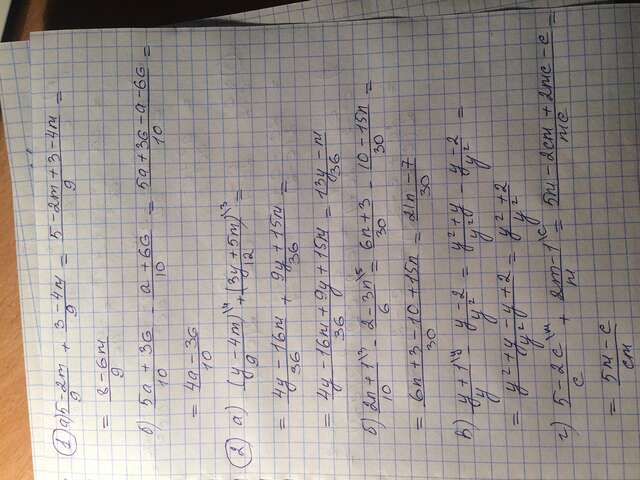 1 а) 5-2m/9 + 3-4m/9 = 5-2m+3-4m/9 =
= 8-6m/9
б) 5a+3б/10 - a+6б/10 = 5a+3б-a-6б/10 =
= 4a-3б/10
2 а) (y-4m)\4/9 + (3y+5m)\3/12 =
= 4y-16m/36 + 9y+15m/36 =
= 4y-16m+9y+15m/36 = 13y-m/36
б) 2n+1\3/10 - 2-3n\5/6 = 6n+3/30 - 10-15n/30 =
= 6n+3-10+15n/30 = 21n-7/30
в) y+1\y/y - y-2/y² = y²+y/y² - y-2/y² =
= y²+y-y+2/y² = y²+2/y²
г) 5-2c\m/c + 2m-1\c/m = 5m-2cm+2mc-c/mc =
= 5m-c/cm